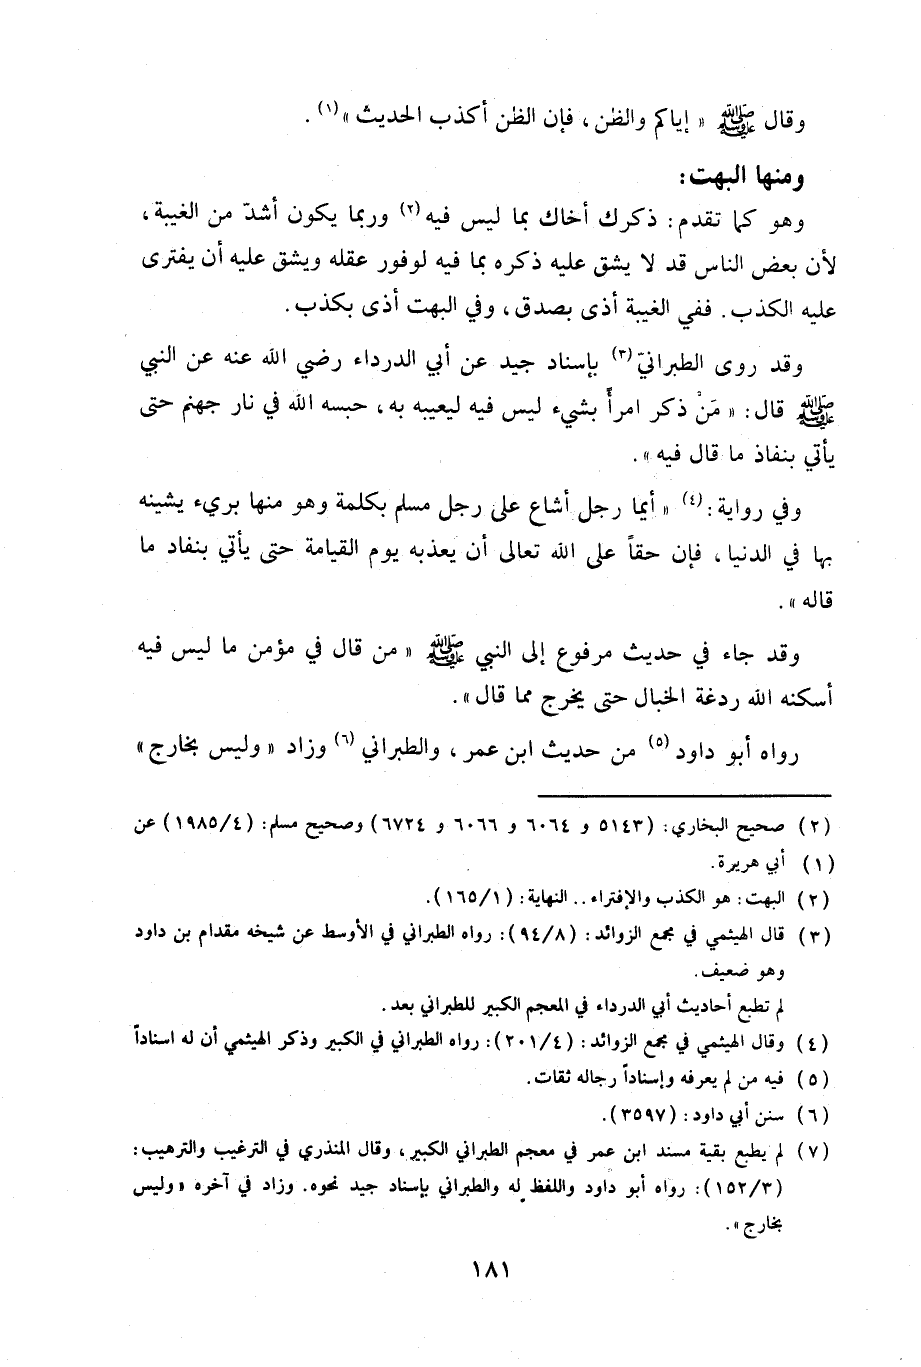 وقال ﷺ « إياكم والظن ، فإن الظن أكذب الحديث »(١) .
ومنها البهت :
وهو كما تقدم : ذكرك أخاك بما ليس فيه(٢) وربما يكون أشدّ من الغيبة ،
لأن بعض الناس قد لا يشق عليه ذكره بما فيه لوفور عقله ويشق عليه أن يفترى
عليه الكذب . ففي الغيبة أذى بصدق ، وفي البهت أذى بكذب .
وقد روى الطبرانيّ(٣) بإسناد جيد عن أبي الدرداء رضي الله عنه عن النبي
ﷺ قال : « مَنْ ذكر امرأً بشيء ليس فيه ليعيبه به ، حبسه الله في نار جهنم حتى
يأتي بنفاذ ما قال فيه » .
وفي رواية :(٤) « أيما رجل أشاع على رجل مسلم بكلمة وهو منها بريء يشينه
بها في الدنيا ، فإن حقاً على الله تعالى أن يعذبه يوم القيامة حتى يأتي بنفاد ما
قاله » .
وقد جاء في حديث مرفوع إلى النبي ﷺ « من قال في مؤمن ما ليس فيه
أسكنه الله ردغة الخبال حتى يخرج مما قال » .
رواه أبو داود(٥) من حديث ابن عمر ، والطبراني(٦) وزاد « وليس بخارج »
(٢) صحيح البخاري : (٥١٤٣ و ٦٠٦٤ و ٦٠٦٦ و ٦٧٢٤) وصحيح مسلم : (١٩٨٥/٤) عن
(١) أبي هريرة .
(٢) البهت : هو الكذب والإفتراء .. النهاية : (١٦٥/١) .
(٣) قال الهيثمي في مجمع الزوائد : (٩٤/٨) : رواه الطبراني في الأوسط عن شيخه مقدام بن داود
وهو ضعيف .
لم تطبع أحاديث أبي الدرداء في المعجم الكبير للطبراني بعد .
(٤) وقال الهيثمي في مجمع الزوائد : (٢٠١/٤) : رواه الطبراني في الكبير وذكر الهيثمي أن له اسناداً
(٥) فيه من لم يعرفه وإسناداً رجاله ثقات .
(٦) سنن أبي داود : (٣٥٩٧) .
(٧) لم يطبع بقية مسند ابن عمر في معجم الطبراني الكبير ، وقال المنذري في الترغيب والترهيب :
(١٥٢/٣) : رواه أبو داود واللفظ له والطبراني بإسناد جيد نحوه . وزاد في آخره « وليس
بخارج » .
١٨١